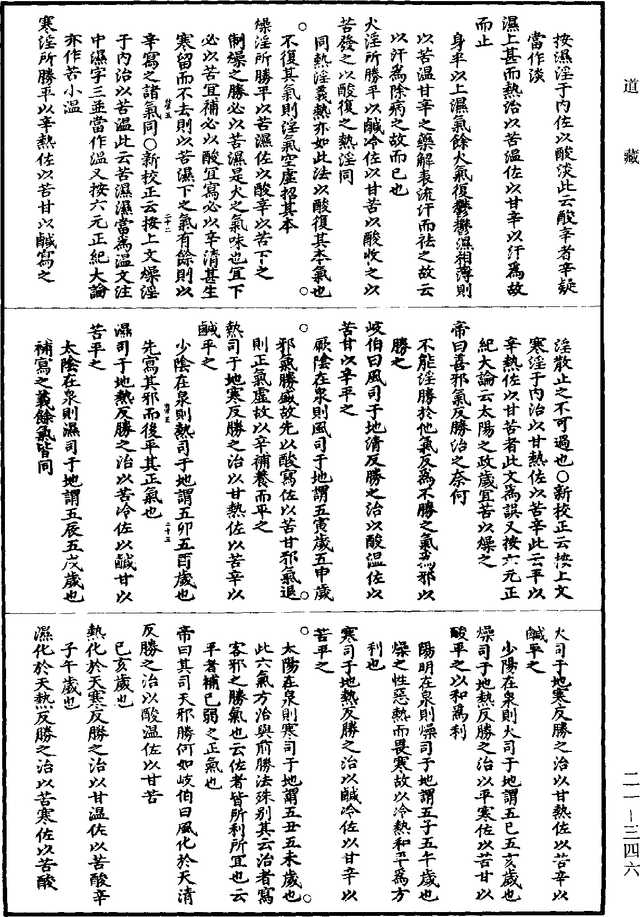 道藏
按濕淫于內佐以酸淡此云酸辛者辛疑
當作淡
濕上甚而熱治以苦溫佐以甘辛以汗爲故
而止
身半以上濕氣餘火氣復鬱鬱濕相薄則
以苦溫甘辛之藥解表流汗而祛之故云
以汗爲除病之故而已也
火淫所勝平以鹹冷佐以苦甘以酸收之以
苦發之以酸復之熱淫同
同熱淫義熱亦如此法以酸復其本氣也
不復其氣則淫氣空虛招其本
燥淫所勝平以苦濕佐以酸辛以苦下之
制燥之勝必以苦濕是火之氣味也宜下
必以苦宜補必以酸宜寫必以辛清甚生
寒留而不去則以苦濕下之氣有餘則以
辛寫之諸氣同○新校正云按上文燥淫
于內治以苦溫此云苦濕濕當爲溫文注
中濕字三並當作溫又按六元正紀大論
亦作苦小溫
寒淫所勝平以辛熱佐以苦甘以鹹寫之
淫散止之不可過也○新校正云按上文
寒淫于內治以甘熱佐以苦辛此云平以
辛熱佐以甘苦者此文爲誤又按六元正
紀大論云太陽之政歲宜苦以燥之
帝曰善邪氣反勝治之奈何
不能淫勝於他氣反爲不勝之氣爲邪以
勝之
岐伯曰風司于地清反勝之治以酸溫佐以
苦甘以辛平之
厥陰在泉則風司于地謂五寅歲五申歲
邪氣勝盛故先以酸寫佐以苦甘邪氣退
則正氣虛故以辛補養而平之
熱司于地寒反勝之治以甘熱佐以苦辛以
鹹平之
少陰在泉則熱司于地謂五卯五酉歲也
先寫其邪而後平其正氣也
濕司于地熱反勝之治以苦冷佐以鹹甘以
苦平之
太陰在泉則濕司于地謂五辰五戌歲也
補寫之義餘氣皆同
火司于地寒反勝之治以甘熱佐以苦辛以
鹹平之
少陽在泉則火司于地謂五巳五亥歲也
燥司于地熱反勝之治以平寒佐以苦甘以
酸平之以和爲利
陽明在泉則燥司于地謂五子五午歲也
燥之性惡熱而畏寒故以冷熱和平爲方
利也
寒司于地熱反勝之治以鹹冷佐以甘辛以
苦平之
太陽在泉則寒司于地謂五丑五未歲也
此六氣方治與前勝法殊別其云治者寫
客邪之勝氣也云佐者皆所利所宜也云
平者補已弱之正氣也
帝曰其司天邪勝何如岐伯曰風化於天清
反勝之治以酸溫佐以甘苦
巳亥歲也
熱化於天寒反勝之治以甘溫佐以苦酸辛
子午歲也
濕化於天熱反勝之治以苦寒佐以苦酸
二一-三四六